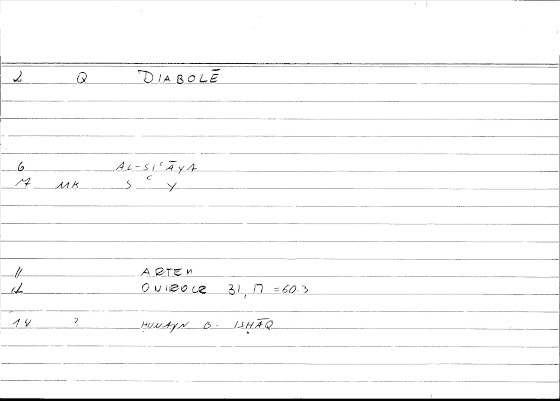 2 Q DIABOLĒ
6 AL-SIʿĀYA
17 MK SʿY
11 ARTEM
ONIROCR 31, 17 = 60.3
14 ? ḤUNAYN B. ISḤĀQ